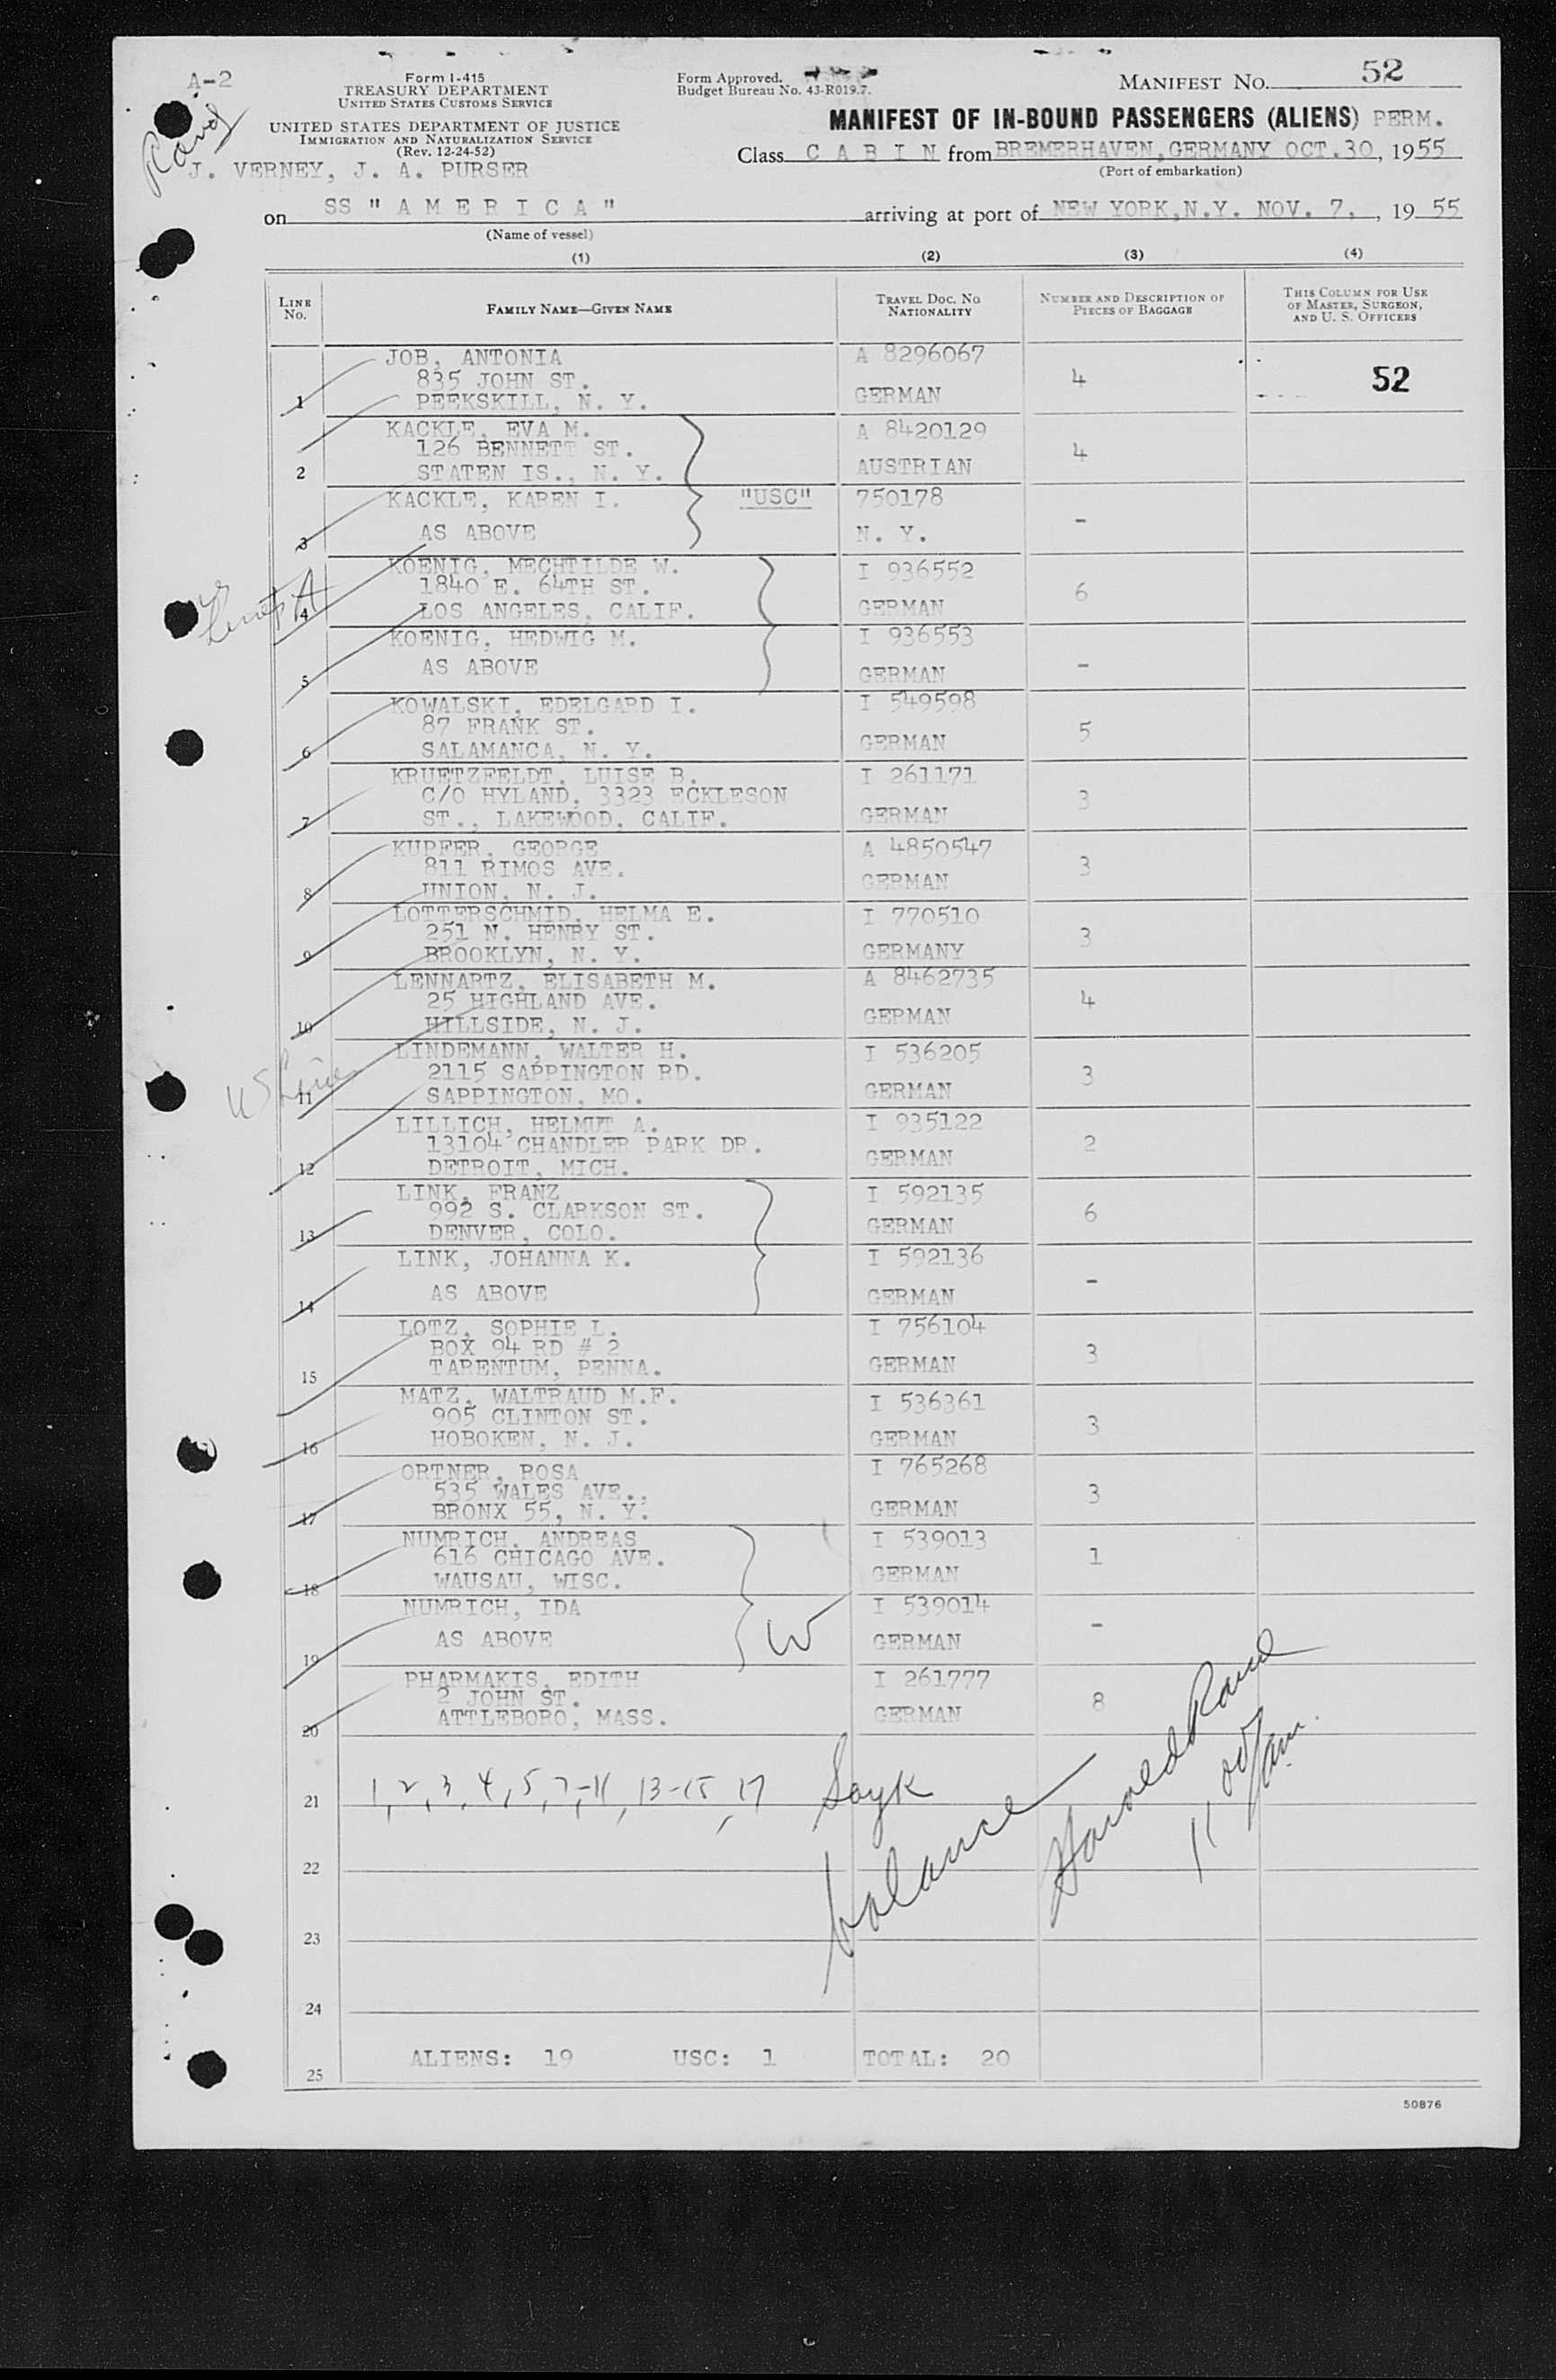 A-2
Form I-415
TREASURY DEPARTMENT
UNITED STATES CUSTOMS SERVICE
UNITED STATES DEPARTMENT OF JUSTICE
IMMIGRATION AND NATURALIZATION SERVICE
(Rev. 12-24-52)
J. VERNEY, J. A. PURSER
Form Approved.
Budget Bureau No. 43-R019.7.
MANIFEST NO. 52
MANIFEST OF IN-BOUND PASSENGERS (ALIENS) PERM.
Class C A B I N from BREMERHAVEN, GERMANY OCT.30, 1955
(Port of embarkation)
on SS "A M E R I C A" arriving at port of NEW YORK,N.Y. NOV. 7, , 19 55
(Name of vessel)
(1) (2) (3) (4)
LINE No. FAMILY NAME—GIVEN NAME TRAVEL DOC. NO. NATIONALITY NUMBER AND DESCRIPTION OF PIECES OF BAGGAGE THIS COLUMN FOR USE OF MASTER, SURGEON, AND U. S. OFFICERS
JOB, ANTONIA A 8296067
835 JOHN ST. 4 52
1 PEEKSKILL, N. Y. GERMAN
KACKLE, EVA M. A 8420129
126 BENNETT ST. 4
2 STATEN IS., N. Y. AUSTRIAN
KACKLE, KAREN I. "USC" 750178
3 AS ABOVE N. Y. -
KOENIG, MECHTILDE W. I 936552
1840 E. 64TH ST. 6
4 LOS ANGELES, CALIF. GERMAN
KOENIG, HEDWIG M. I 936553
5 AS ABOVE GERMAN -
KOWALSKI, EDELGARD I. I 549598
87 FRANK ST. 5
6 SALAMANCA, N. Y. GERMAN
KRUETZFELDT, LUISE B. I 261171
C/O HYLAND, 3323 ECKLESON 3
7 ST., LAKEWOOD, CALIF. GERMAN
KUPFER, GEORGE A 4850547
811 RIMOS AVE. 3
8 UNION, N. J. GERMAN
LOTTERSCHMID, HELMA E. I 770510
251 N. HENRY ST. 3
9 BROOKLYN, N. Y. GERMANY
LENNARTZ, ELISABETH M. A 8462735
25 HIGHLAND AVE. 4
10 HILLSIDE, N. J. GERMAN
LINDEMANN, WALTER H. I 536205
2115 SAPPINGTON RD. 3
11 SAPPINGTON, MO. GERMAN
LILLICH, HELMUT A. I 935122
13104 CHANDLER PARK DR. 2
12 DETROIT, MICH. GERMAN
LINK, FRANZ I 592135
992 S. CLARKSON ST. 6
13 DENVER, COLO. GERMAN
LINK, JOHANNA K. I 592136
14 AS ABOVE GERMAN -
LOTZ, SOPHIE L. I 756104
BOX 94 RD # 2 3
15 TARENTUM, PENNA. GERMAN
MATZ, WALTRAUD M.F. I 536361
905 CLINTON ST. 3
16 HOBOKEN, N. J. GERMAN
ORTNER, ROSA I 765268
535 WALES AVE., 3
17 BRONX 55, N. Y. GERMAN
NUMRICH, ANDREAS I 539013
616 CHICAGO AVE. 1
18 WAUSAU, WISC. GERMAN
NUMRICH, IDA I 539014
19 AS ABOVE W GERMAN -
PHARMAKIS, EDITH I 261777
2 JOHN ST. 8
20 ATTLEBORO, MASS. GERMAN
21 1, 2, 3, 4, 5, 7-11, 13-15, 17 Sayk
balance Harold Rand 11 00/am.
22
23
24
25 ALIENS: 19 USC: 1 TOTAL: 20
50876